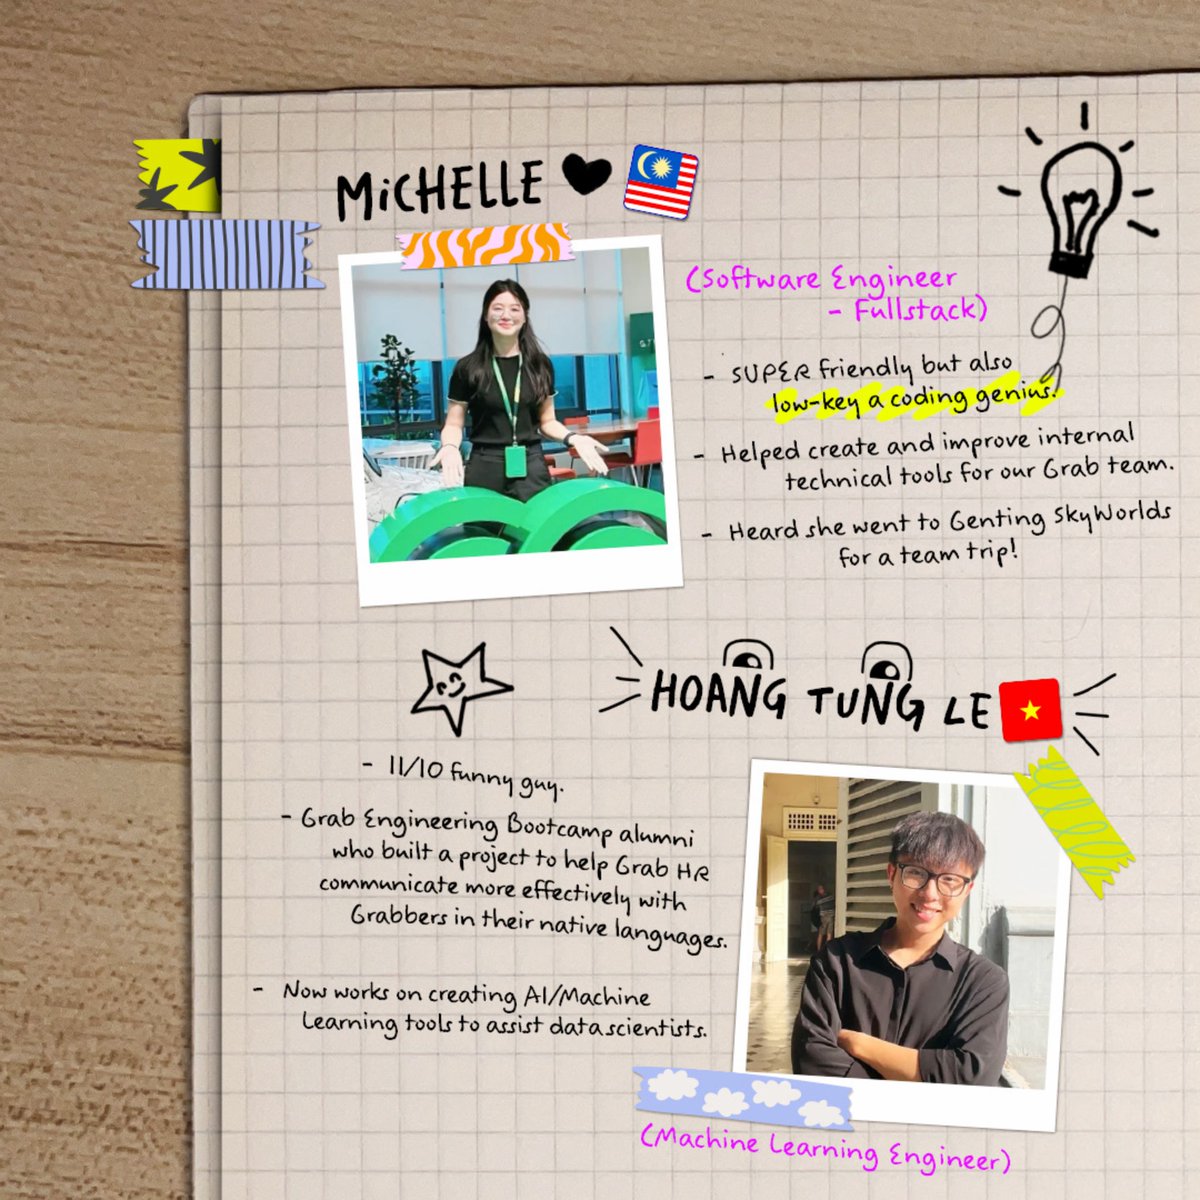 MiCHELLE
(Software Engineer
- Fullstack)
- SUPER friendly but also
low-key a coding genius.
- Helped create and improve internal
technical tools for our Grab team.
- Heard she went to Genting SkyWorlds
for a team trip!
HOANG TUNG LE
- 11/10 funny guy.
- Grab Engineering Bootcamp alumni
who built a project to help Grab HR
communicate more effectively with
Grabbers in their native languages.
- Now works on creating AI/Machine
Learning tools to assist data scientists.
(Machine Learning Engineer)